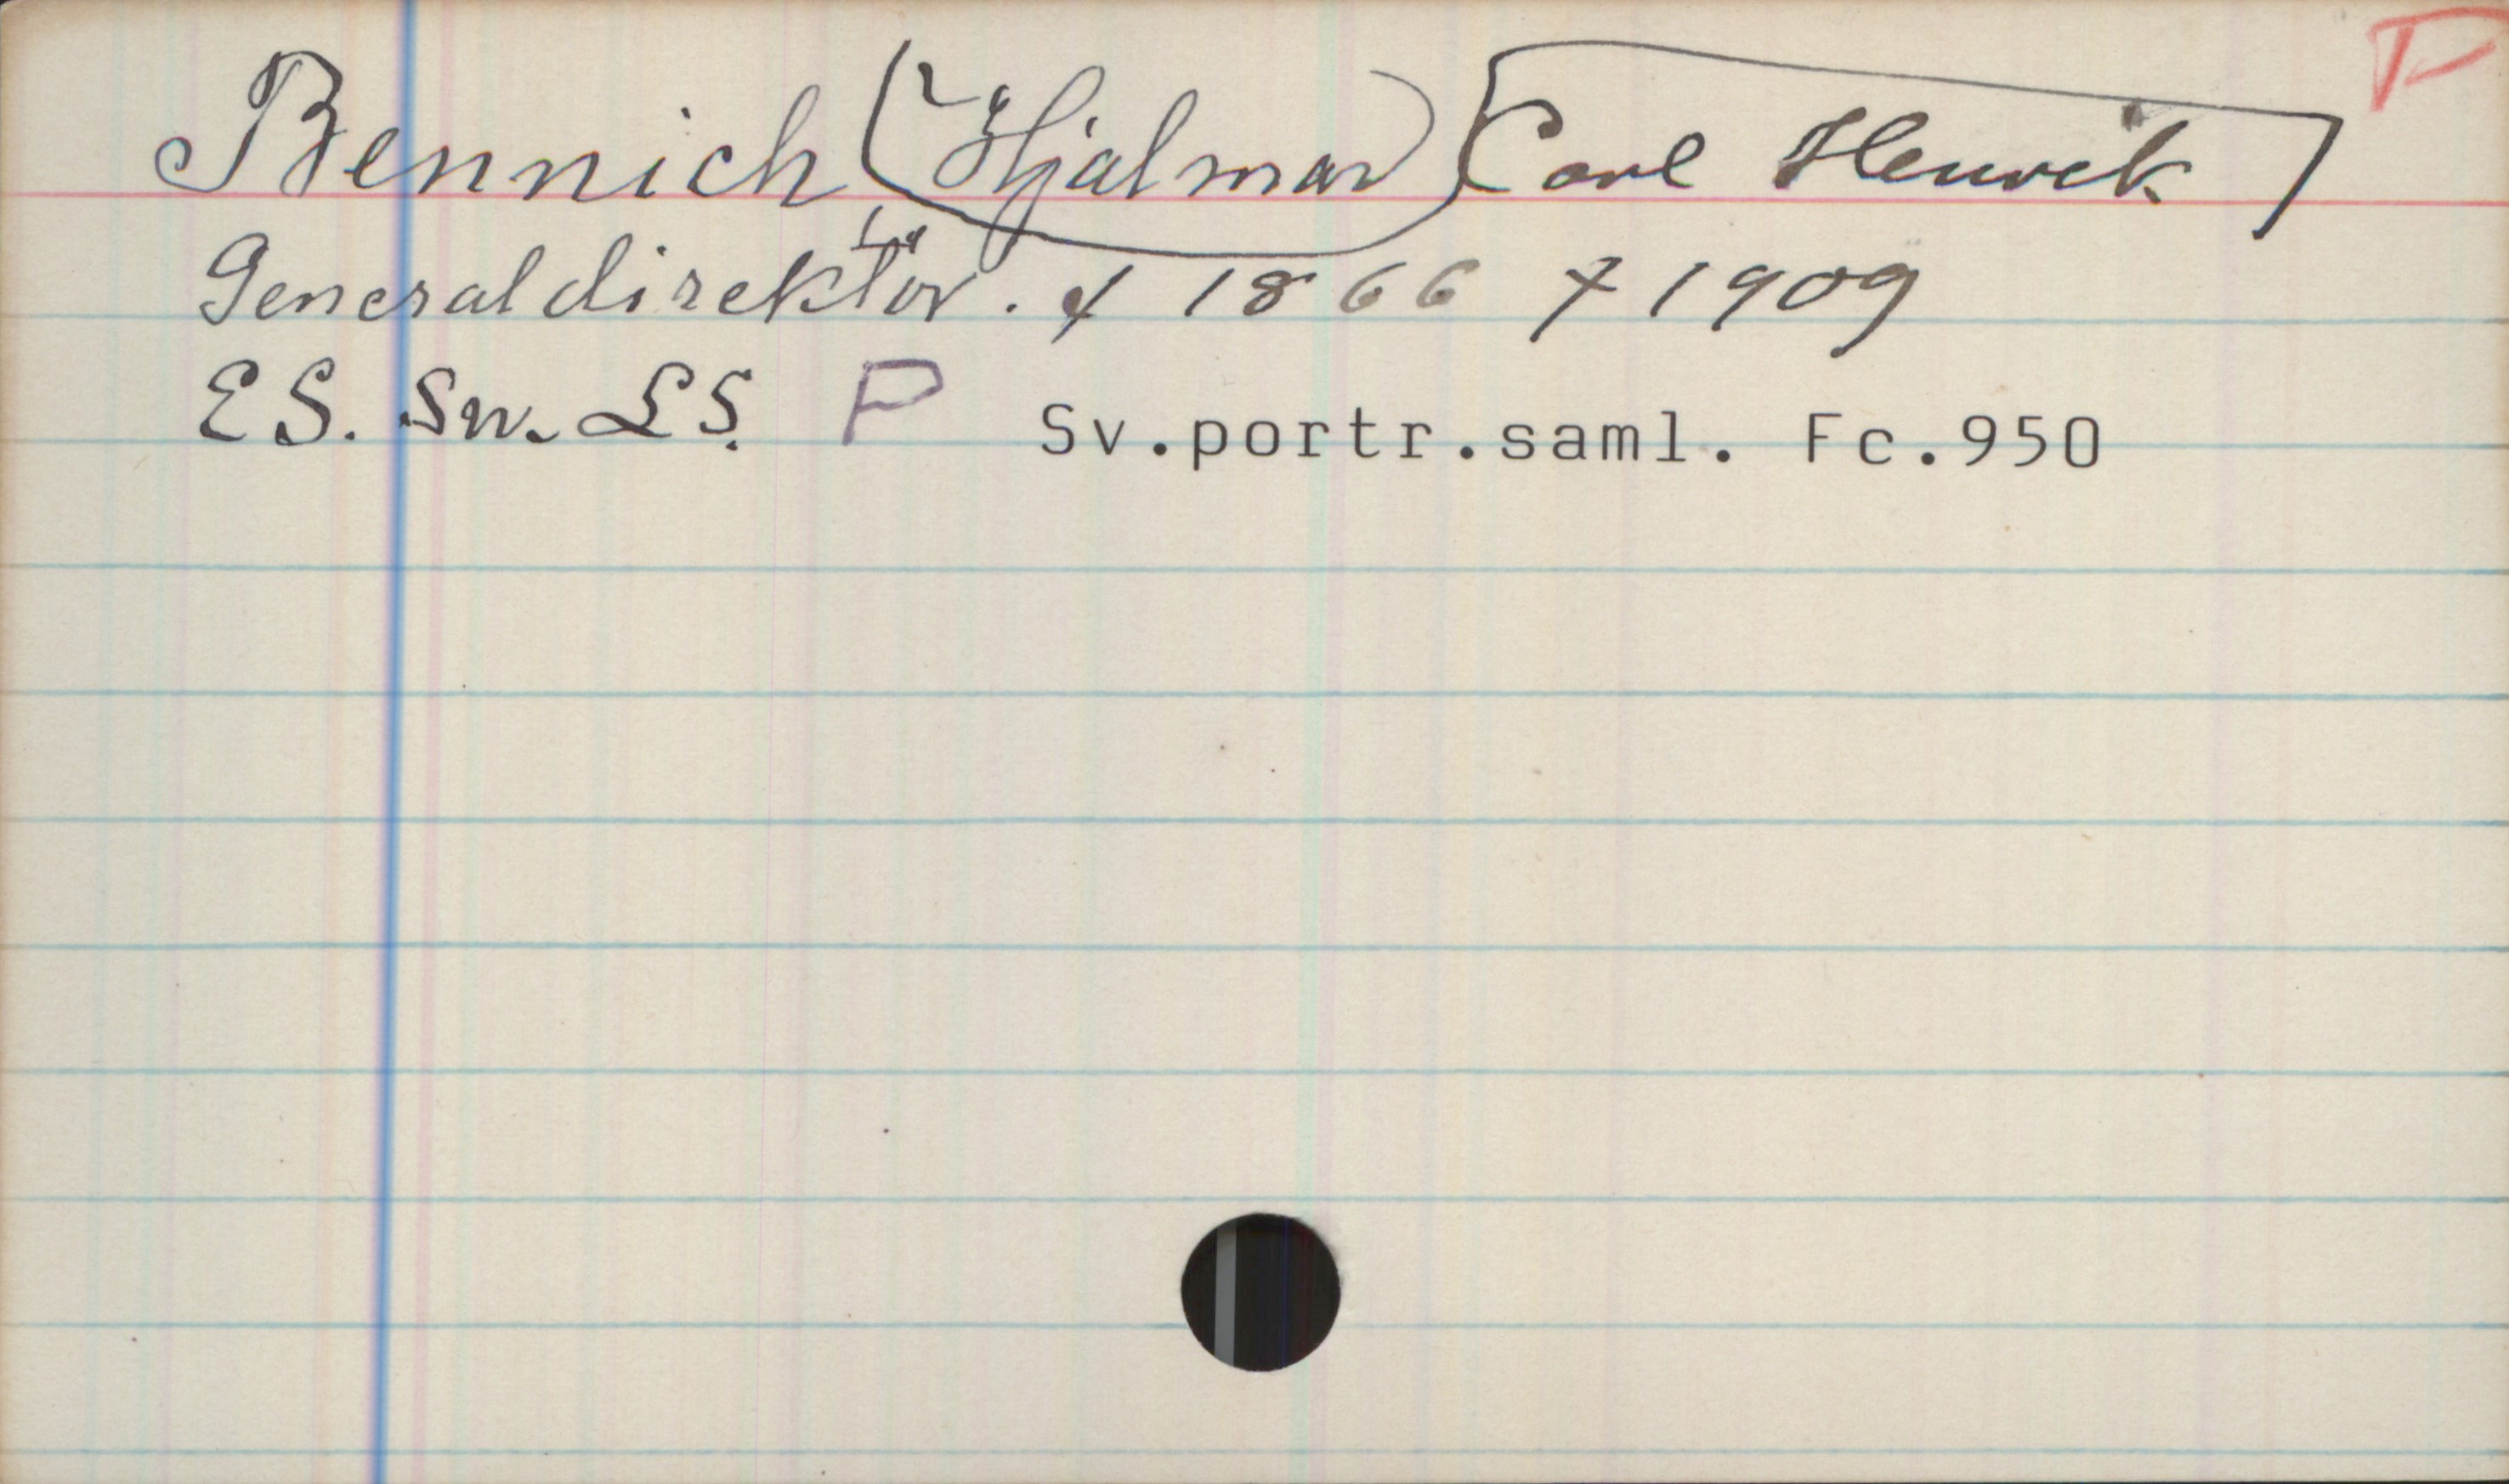 Bennich Hjalmar Carl Henrik P
Generaldirektör. * 1866 † 1909
ES. Sn. LS. P Sv.portr.saml. Fc.950